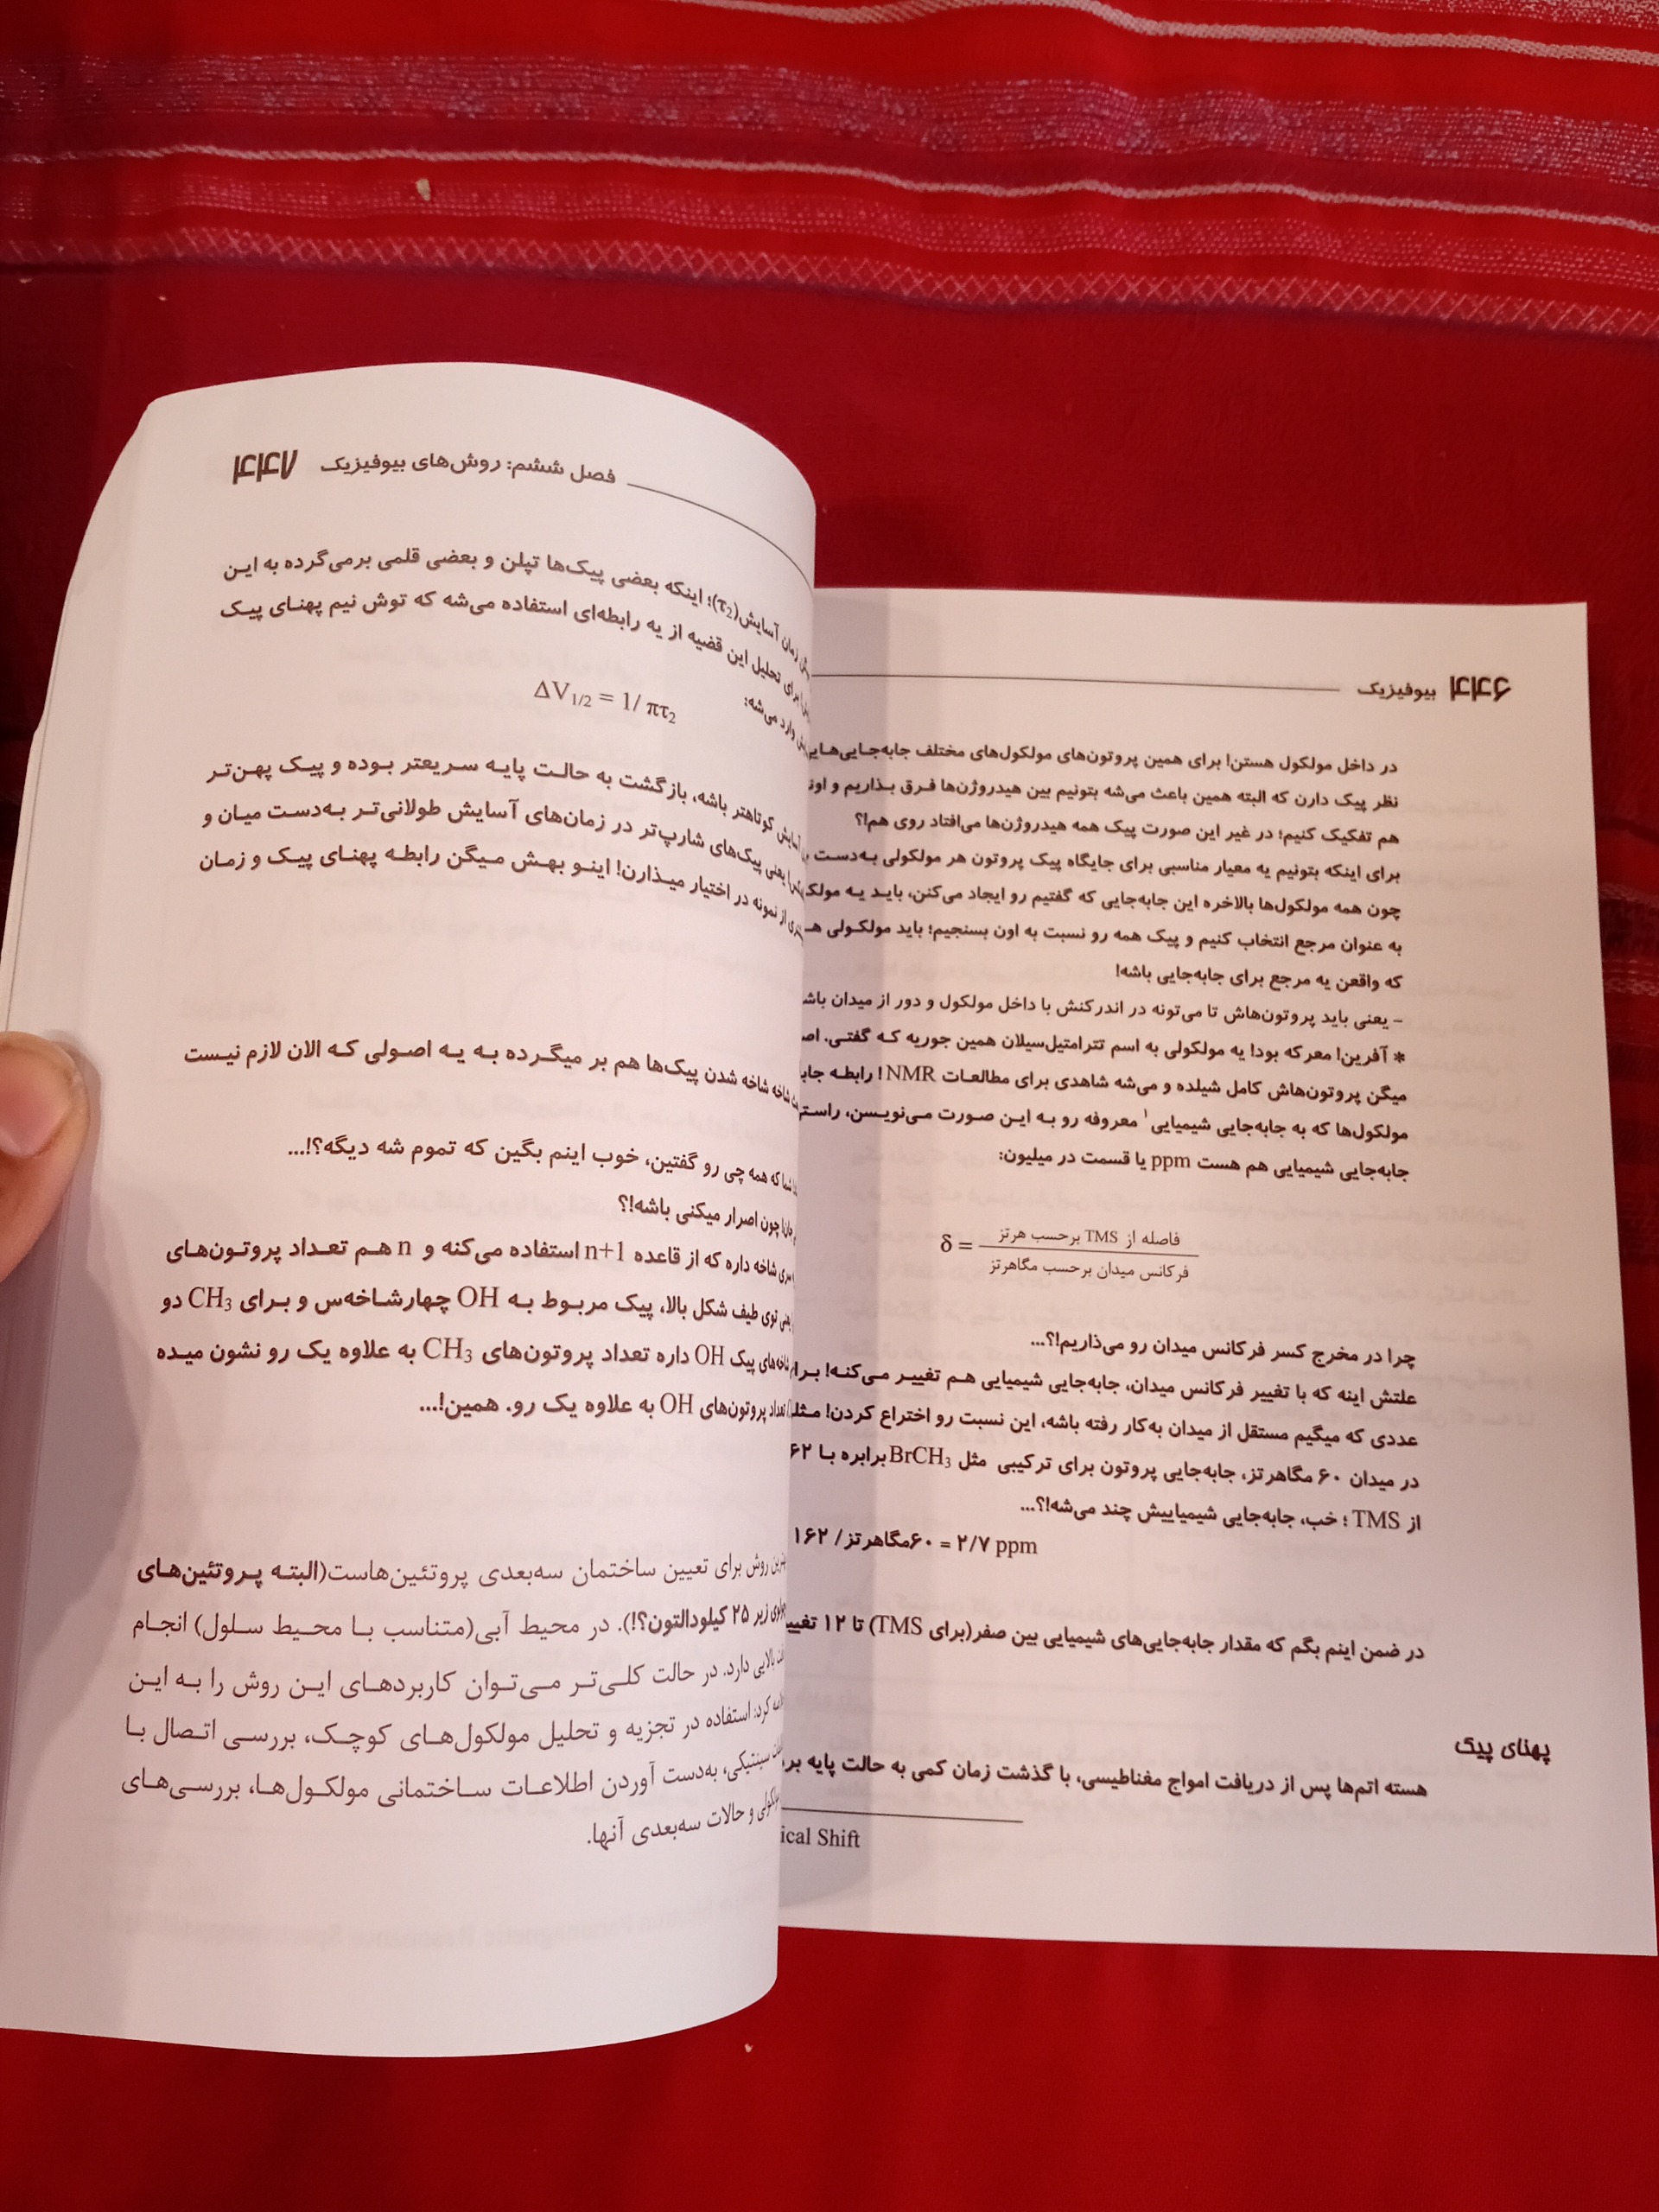 ۴۴۶ بیوفیزیک
در داخل مولکول هستن! برای همین پروتون‌های مولکول‌های مختلف جابه‌جایی‌هایی
نظر پیک دارن که البته همین باعث می‌شه بتونیم بین هیدروژن‌ها فرق بذاریم و
هم تفکیک کنیم؛ در غیر این صورت پیک همه هیدروژن‌ها می‌افتاد روی هم!؟
برای اینکه بتونیم یه معیار مناسبی برای جایگاه پیک پروتون هر مولکولی به‌دست
چون همه مولکول‌ها بالاخره این جابه‌جایی که گفتیم رو ایجاد می‌کنن، باید یه
به عنوان مرجع انتخاب کنیم و پیک همه رو نسبت به اون بسنجیم؛ باید مولکولی
که واقعن یه مرجع برای جابه‌جایی باشه!
– یعنی باید پروتون‌هاش تا می‌تونه در اندرکنش با داخل مولکول و دور از میدان
* آفرین! معرکه بود! یه مولکولی به اسم تترامتیل‌سیلان همین جوریه که گفتی.
میگن پروتون‌هاش کامل شیلده و می‌شه شاهدی برای مطالعات NMR! رابطه
مولکول‌ها که به جابه‌جایی شیمیایی۱ معروفه رو به این صورت می‌نویسن،
جابه‌جایی شیمیایی هم هست ppm یا قسمت در میلیون:
δ = فاصله از TMS برحسب هرتز
فرکانس میدان برحسب مگاهرتز
چرا در مخرج کسر فرکانس میدان رو می‌ذاریم!؟...
علتش اینه که با تغییر فرکانس میدان، جابه‌جایی شیمیایی هم تغییر می‌کنه!
عددی که میگیم مستقل از میدان به‌کار رفته باشه، این نسبت رو اختراع کردن!
در میدان ۶۰ مگاهرتز، جابه‌جایی پروتون برای ترکیبی مثل BrCH3 برابره با
از TMS ؛ خب، جابه‌جایی شیمیاییش چند می‌شه!؟...
۱۶۲ /مگاهرتز۶۰ = ۲/۷ ppm
در ضمن اینم بگم که مقدار جابه‌جایی‌های شیمیایی بین صفر(برای TMS) تا ۱۲
پهنای پیک
هسته اتم‌ها پس از دریافت امواج مغناطیسی، با گذشت زمان کمی به حالت پایه
ical Shift
فصل ششم: روش‌های بیوفیزیک ۴۴۷
زمان آسایش(τ2)؛ اینکه بعضی پیک‌ها تپلن و بعضی قلمی برمی‌گرده به این
برای تحلیل این قضیه از یه رابطه‌ای استفاده می‌شه که توش نیم پهنای پیک
وارد می‌شه:
ΔV1/2 = 1/ πτ2
آسایش کوتاهتر باشه، بازگشت به حالت پایه سریعتر بوده و پیک پهن‌تر
یعنی پیک‌های شارپ‌تر در زمان‌های آسایش طولانی‌تر به‌دست میان و
از نمونه در اختیار میذارن! اینو بهش میگن رابطه پهنای پیک و زمان
شاخه شاخه شدن پیک‌ها هم بر میگرده به یه اصولی که الان لازم نیست
شما که همه چی رو گفتین، خوب اینم بگین که تموم شه دیگه؟!...
چون اصرار میکنی باشه!؟
شاخه داره که از قاعده n+1 استفاده می‌کنه و n هم تعداد پروتون‌های
توی طیف شکل بالا، پیک مربوط به OH چهارشاخه‌س و برای CH3 دو
پیک OH داره تعداد پروتون‌های CH3 به علاوه یک رو نشون میده
تعداد پروتون‌های OH به علاوه یک رو. همین!...
روش برای تعیین ساختمان سه‌بعدی پروتئین‌هاست(البته پروتئین‌های
زیر ۲۵ کیلودالتون؟!). در محیط آبی(متناسب با محیط سلول) انجام
بالایی دارد. در حالت کلی‌تر می‌توان کاربردهای این روش را به این
کرد: استفاده در تجزیه و تحلیل مولکول‌های کوچک، بررسی اتصال با
سینتیکی، به‌دست آوردن اطلاعات ساختمانی مولکول‌ها، بررسی‌های
و حالات سه‌بعدی آنها.